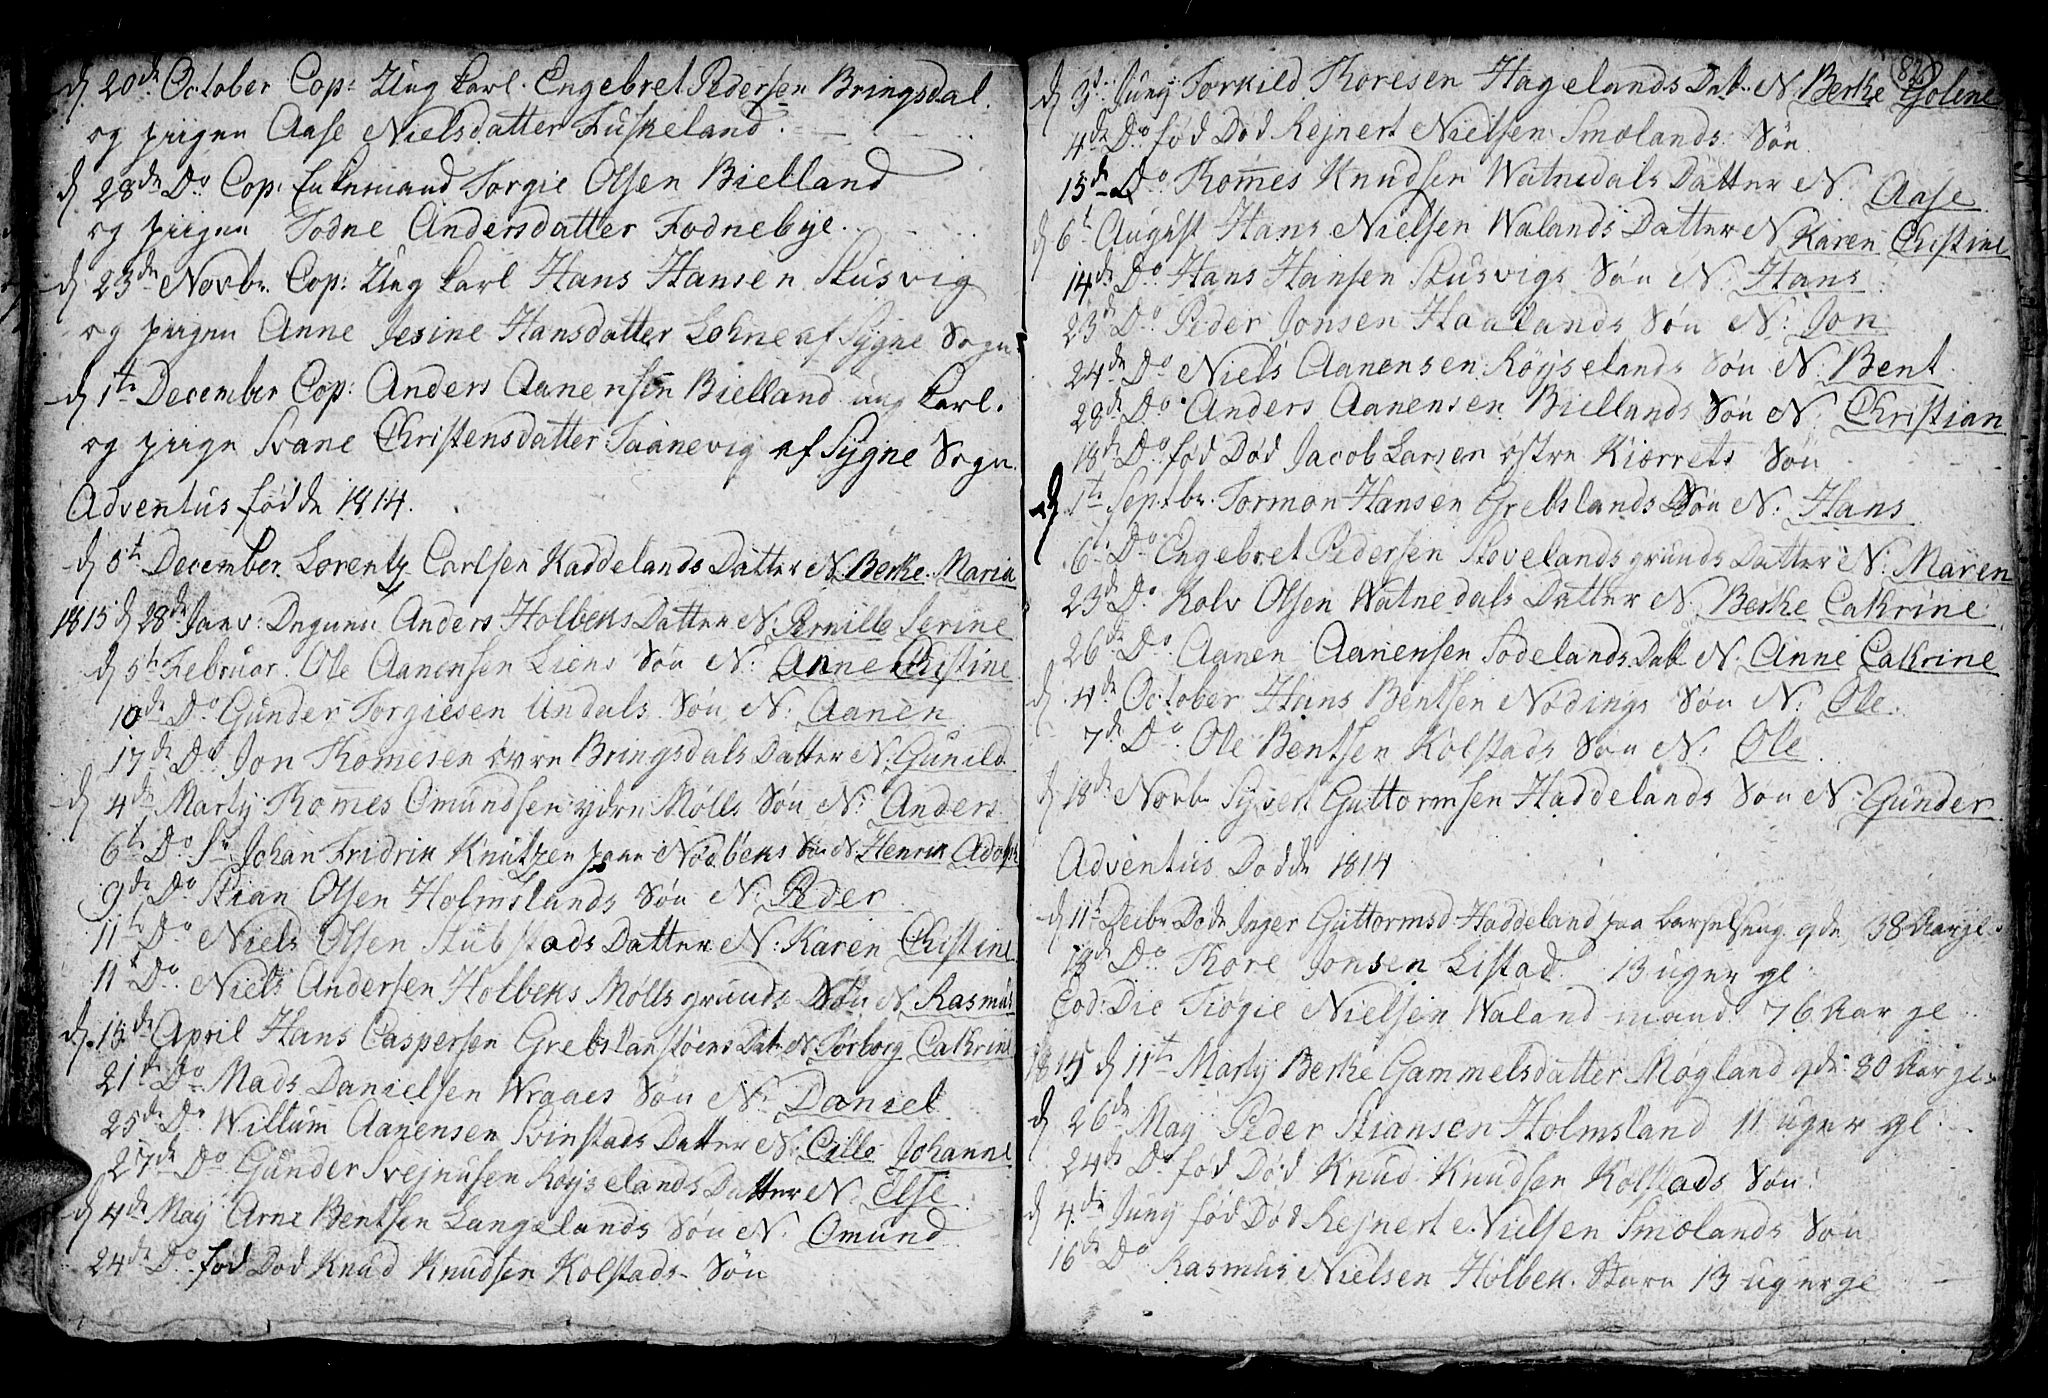 d 20de October Cop: Ung karl. Engebret Pedersen Bringsdal.
og piigen Aase Nielsdatter Fuskeland.
d 28de Do Cop: Enkemand Torgie Olsen Bielland
og piigen Todne Andersdatter Fodnebye.
d 23de Novbr. Cop: Ung karl Hans Hansen Stusvig
og piigen Anne Jesine Hansdatter Lohne af Sygne Sogn
d 1te December Cop: Anders Aanensen Bielland ung karl.
og piige Svane Christensdatter Taanevig af Sygne Sogn
Adventus fødde 1814.
d 8te December Lorentz Carlsen Haddelands Datter N. Berthe Maria
1815 d 28de Janv: Anders Holbeks Datter N: Pernille Serine
d 5te Februar. Ole Aanensen Liens Søn N: Anne Christine
10de Do Gunder Torgiesen Undals Søn N: Aanen
17de Do Jon Thomesen øvre Bringsdals Datter N. Gunild
d 4de Marty Thomes Omundsen ydre Mølls Søn N: Anders
6te Do Sr Johan Fridrik Knutzen paa Nodbeks Søn N. Henrik Adolph
9de Do Stian Olsen Holmslands Søn N: Peder
11te Do Niels Olsen Stubstads Datter N: Karen Christine
11t Do. Niels Andersen Holbeks Mølls grunds Søn N. Rasmus
d. 13de April Hans Caspersen Grebslanstøens Dat: N. Torborg Cathrine
21de Do Mads Danielsen Wraaes Søn N: Daniel
25de Do Willum Aanensen Svinstads Datter N. Cille Johanne
27de Do Gunder Svejnusen Røyselands Datter N. Else
d 4de May Arne Bentsen Langelands Søn N. Omund
24de Do fød Død Knud Knudsen Kolstads Søn
d 3de Juny Torkild Thoresen Hagelands Dat. N Berthe Golene
4de Do fød Død Rejnert Nielsen Smælands Søn
15de Do Thomes Knudsen Watnedals Datter N. Aase
d 6t August Hans Nielsen Walands Datter N Karen Christine
14de Do Hans Hansen Stusvigs Søn N: Hans
23de Do Peder Jonsen Haalands Søn N: Jon
24de Do Niels Aanensen Røyselands Søn N: Bent
28de Do Anders Aanensen Biellands Søn N. Christian
18te Do fød Død Jacob Larsen østre Kiærrets Søn
d 1te Septbr. Tormon Hansen Grebslands Søn N: Hans
6te Do Engebret Pedersen Stovelands grunds Datter N: Maren
23de Do. Rolv Olsen Watnedals Datter N. Berthe Cathrine
26de Do Aanen Aanensen Sødelands Dat N. Anne Cathrine
d 4de October Hans Bentsen Nødings Søn N: Ole.
7de Do. Ole Bentsen Kolstads Søn N: Ole
d 18de Novb Syvert Guttormsen Haddelands Søn N: Gunder
Adventus Døde 1814
d 11t Decbr Døde Inger Guttormsd Haddeland paa barselseng 38 Aar gl
18de Do Thore Jonsen Listad 13 uger gl:
Eod: Die Tiøgie Nielsen Waland mand 76 Aar gl
1815 d 11te Marty Berthe Gammelsdatter Mogland 80 Aar gl
d 26de May Peder Stiansen Holmsland 11 uger gl:
24de Do fød Død Knud Knudsen Kolstads Søn
d 4de Juny fød Død Rejnert Nielsen Smælands Søn
16de Do Rasmus Nielsen Holbek. Barn 13 uger gl